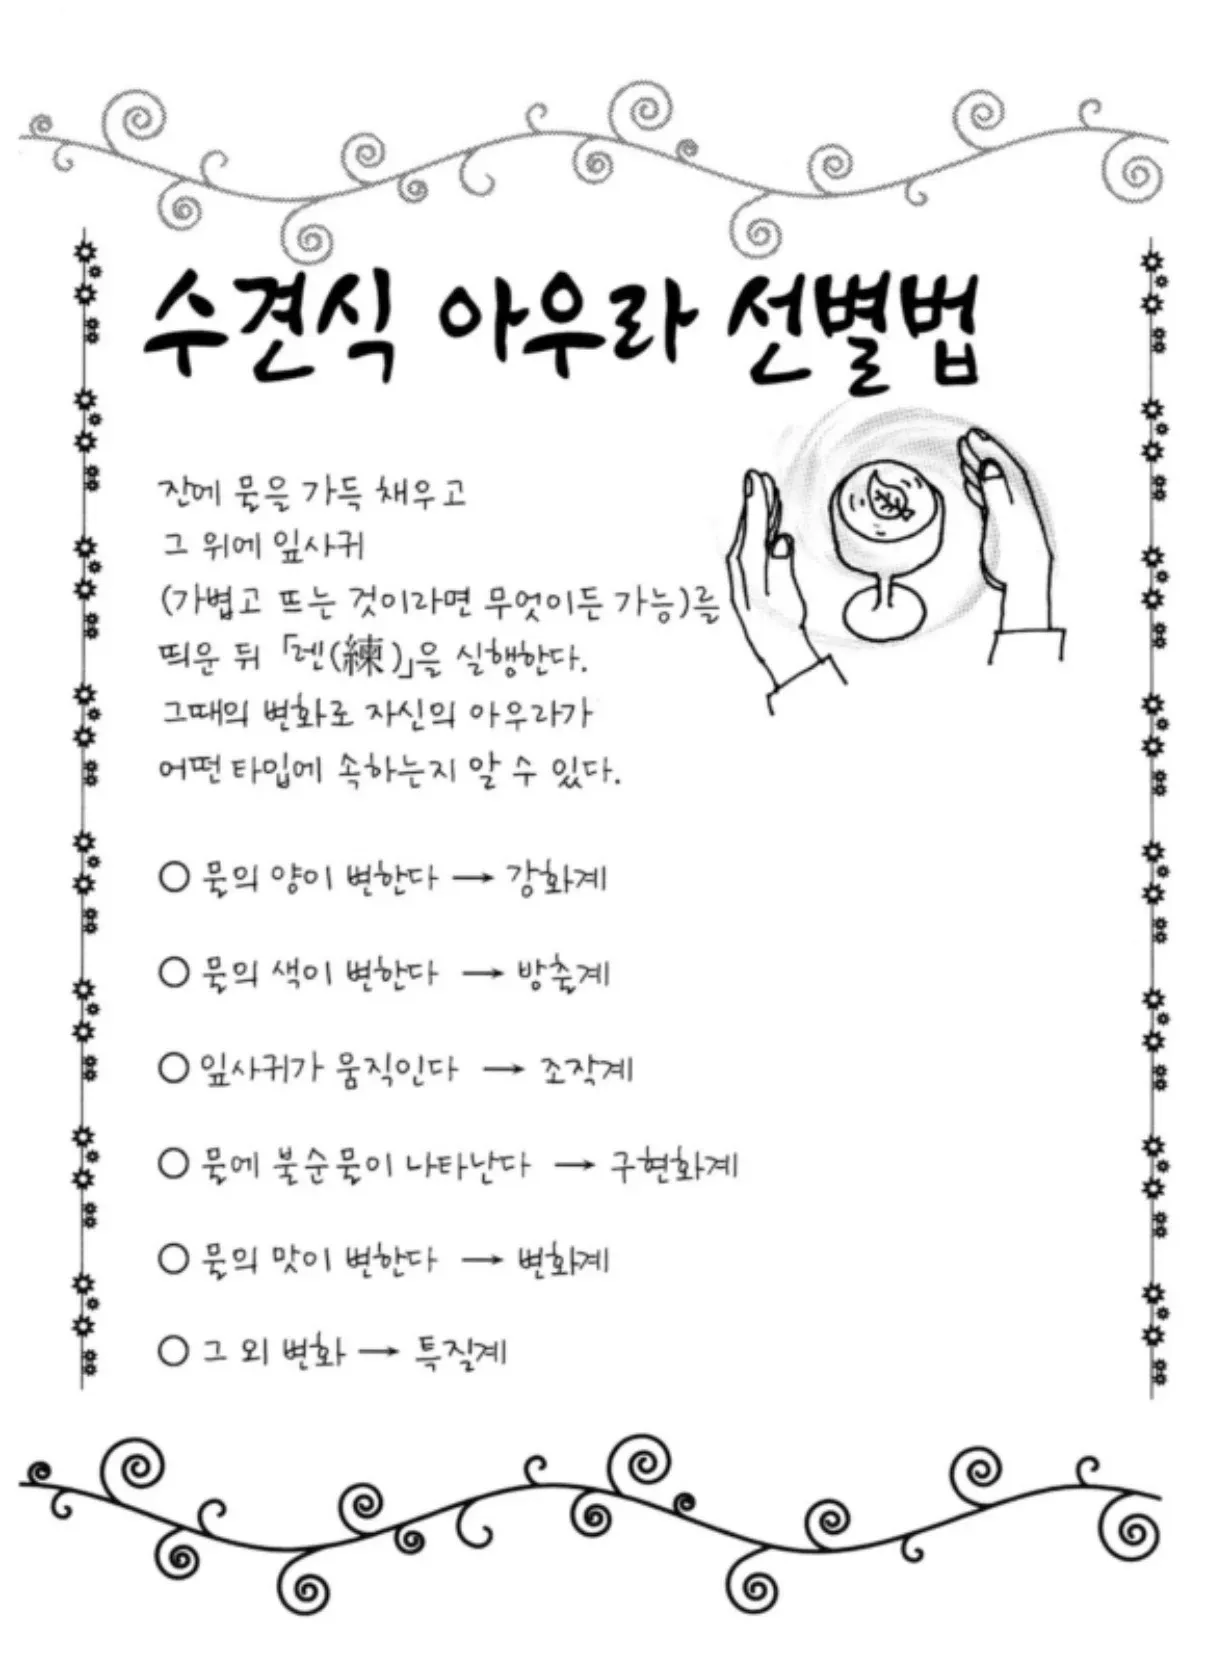 수견식 아우라 선별법
잔에 물을 가득 채우고
그 위에 잎사귀
(가볍고 뜨는 것이라면 무엇이든 가능)를
띄운 뒤 「렌(練)」을 실행한다.
그때의 변화로 자신의 아우라가
어떤 타입에 속하는지 알 수 있다.
○ 물의 양이 변한다 → 강화계
○ 물의 색이 변한다 → 방출계
○ 잎사귀가 움직인다 → 조작계
○ 물에 불순물이 나타난다 → 구현화계
○ 물의 맛이 변한다 → 변화계
○ 그 외 변화 → 특질계